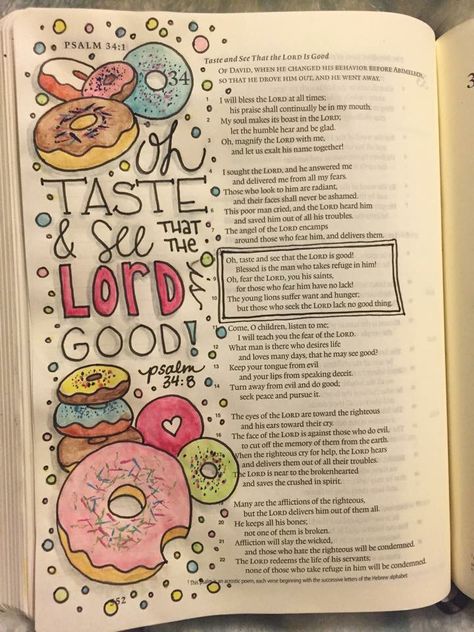 PSALM 34:1
34
Oh
TASTE
& See THAT
THE
LORD is
GOOD!
psalm
34:8
Taste and See That the LORD Is Good
OF DAVID, WHEN HE CHANGED HIS BEHAVIOR BEFORE ABIMELECH,
SO THAT HE DROVE HIM OUT, AND HE WENT AWAY.
I will bless the LORD at all times;
his praise shall continually be in my mouth.
2 My soul makes its boast in the LORD;
let the humble hear and be glad.
3 Oh, magnify the LORD with me,
and let us exalt his name together!
I sought the LORD, and he answered me
and delivered me from all my fears.
Those who look to him are radiant,
and their faces shall never be ashamed.
This poor man cried, and the LORD heard him
and saved him out of all his troubles.
7 The angel of the LORD encamps
around those who fear him, and delivers them.
Oh, taste and see that the LORD is good!
Blessed is the man who takes refuge in him!
9 Oh, fear the LORD, you his saints,
for those who fear him have no lack!
10 The young lions suffer want and hunger;
but those who seek the LORD lack no good thing.
11 Come, O children, listen to me;
I will teach you the fear of the LORD.
12 What man is there who desires life
and loves many days, that he may see good?
13 Keep your tongue from evil
and your lips from speaking deceit.
14 Turn away from evil and do good;
seek peace and pursue it.
15 The eyes of the LORD are toward the righteous
and his ears toward their cry.
16 The face of the LORD is against those who do evil,
to cut off the memory of them from the earth.
When the righteous cry for help, the LORD hears
and delivers them out of all their troubles.
The LORD is near to the brokenhearted
and saves the crushed in spirit.
Many are the afflictions of the righteous,
but the LORD delivers him out of them all.
20 He keeps all his bones;
not one of them is broken.
21 Affliction will slay the wicked,
and those who hate the righteous will be condemned.
22 The LORD redeems the life of his servants;
none of those who take refuge in him will be condemned.
1 This psalm is an acrostic poem, each verse beginning with the successive letters of the Hebrew alphabet